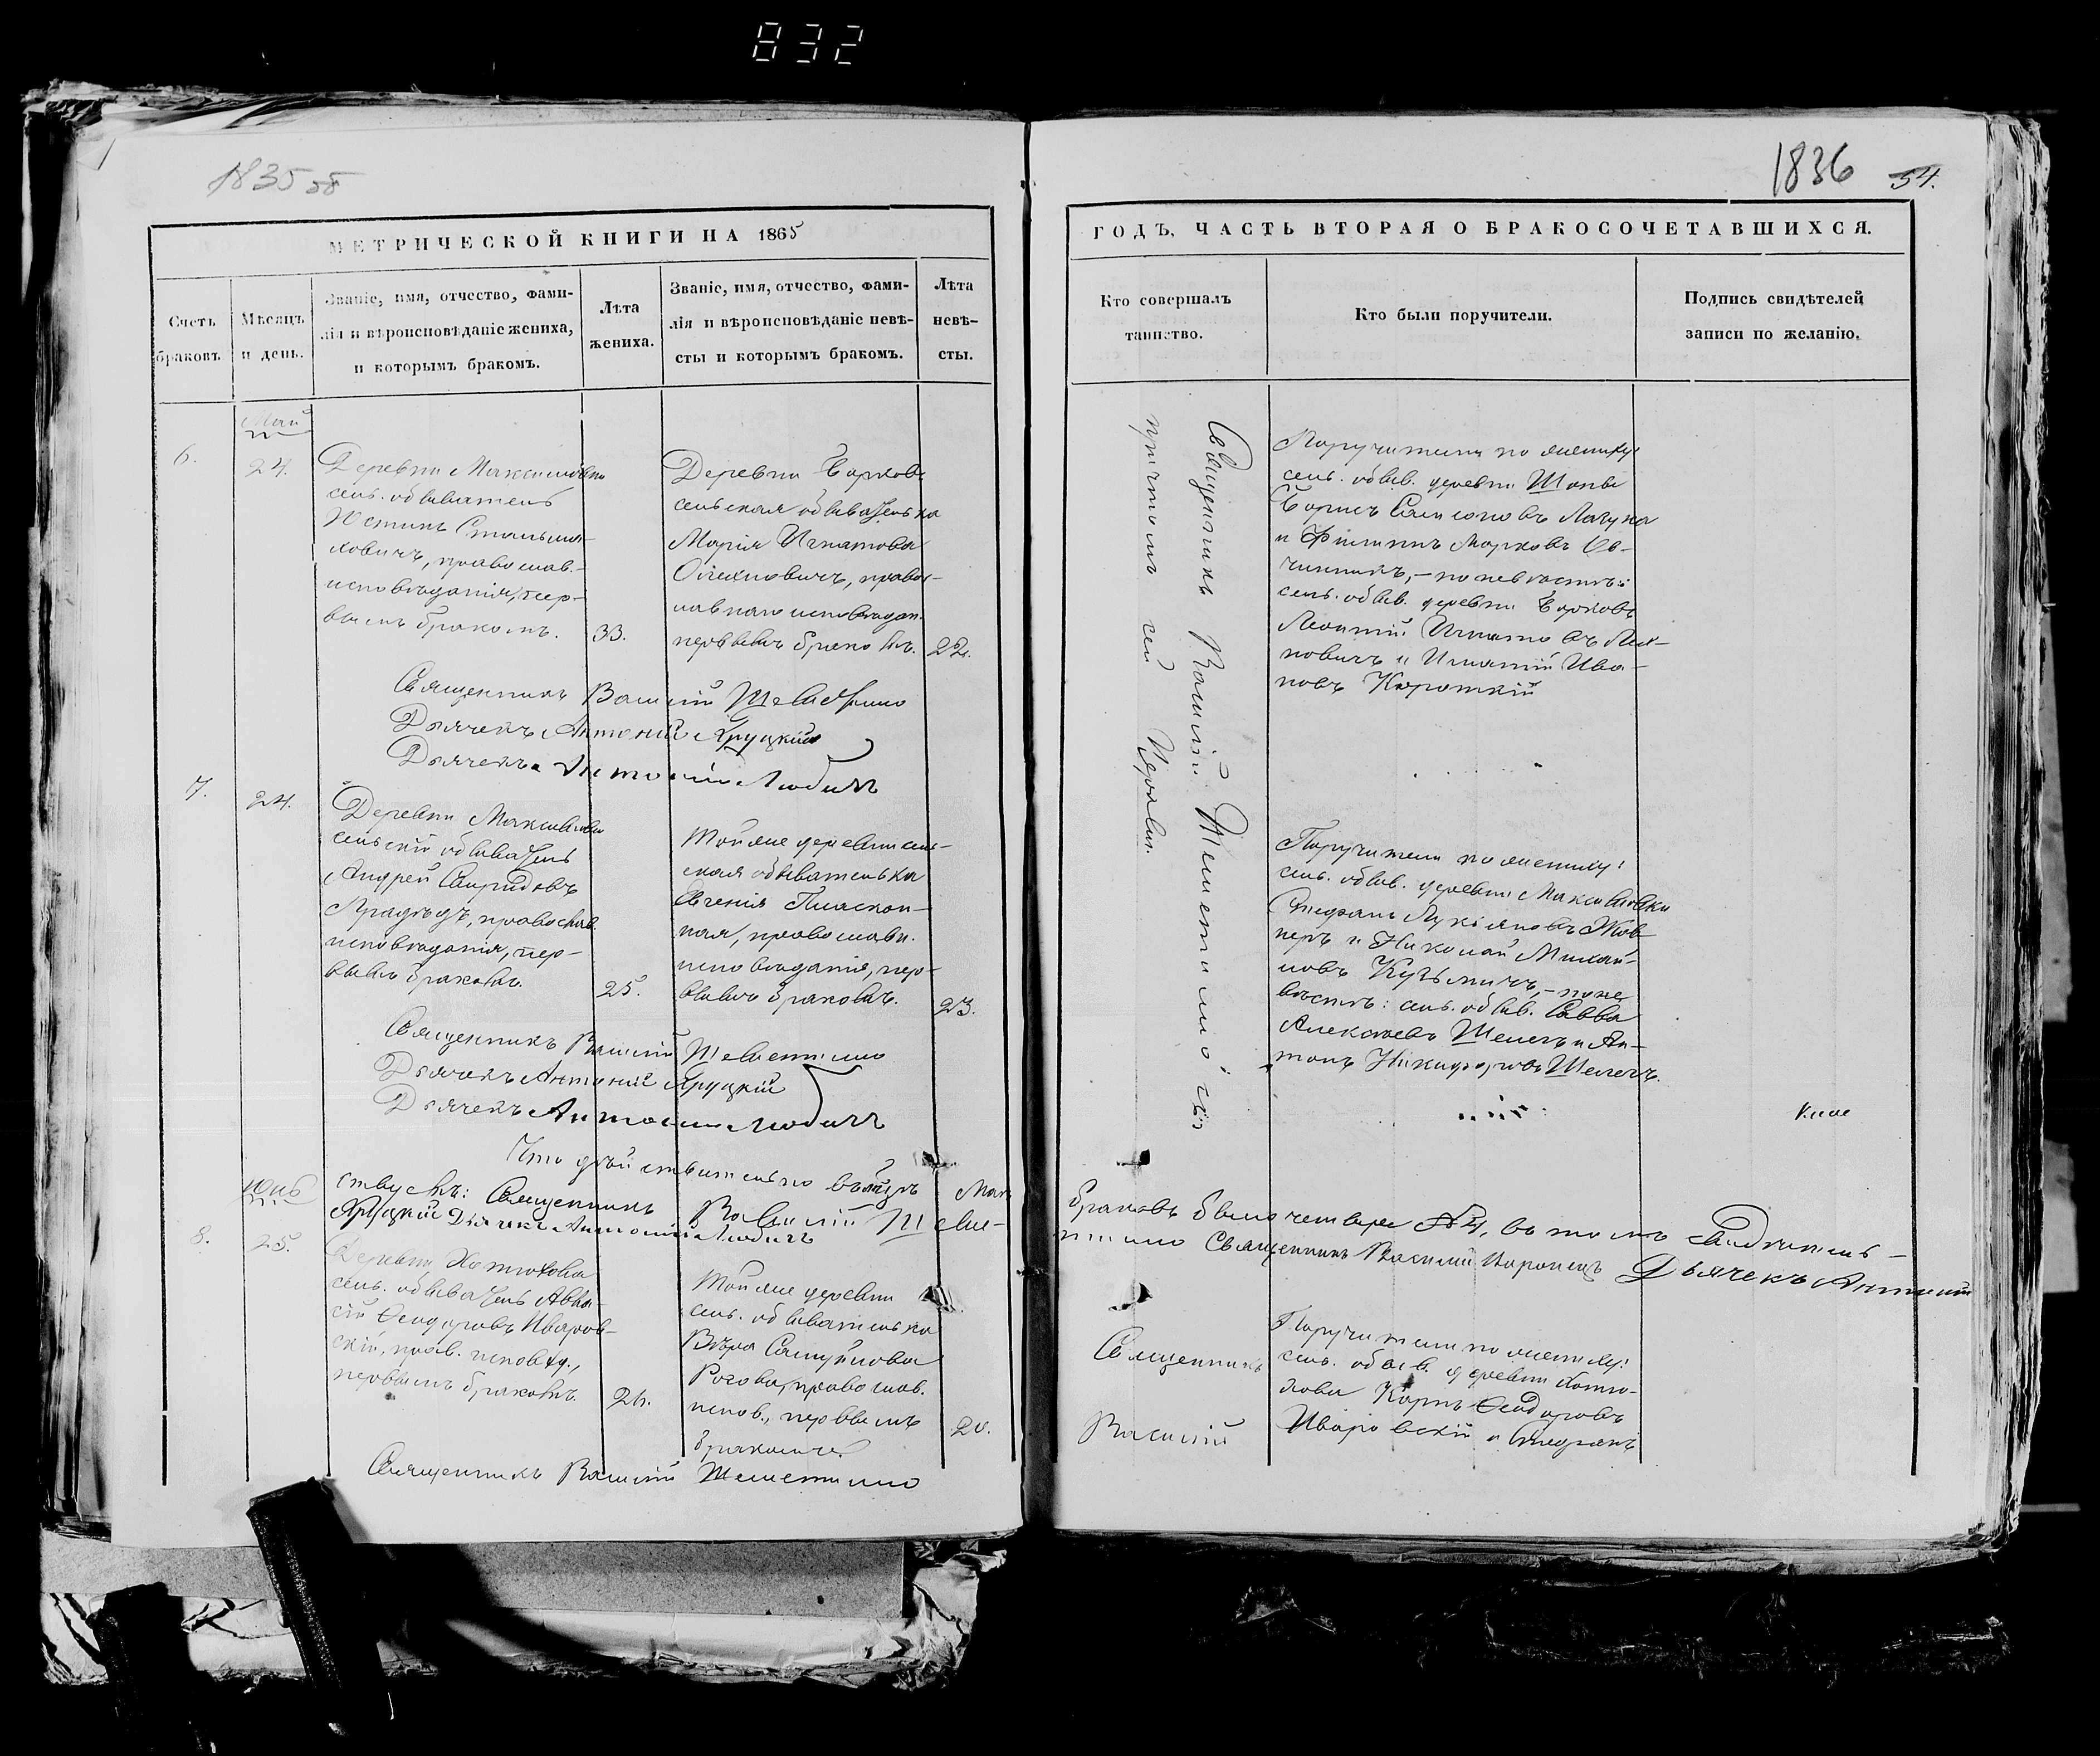 832
1835 об
МЕТРИЧЕСКОЙ КНИГИ НА 1865
Счетъ браковъ.
Мѣсяцъ и день.
Званіе, имя, отчество, фами-
лія и вѣроисповѣданіе жениха,
и которымъ бракомъ.
Лѣта
жениха.
Званіе, имя, отчество, фами-
лія и вѣроисповѣданіе невѣ-
сты и которымъ бракомъ.
Лѣта
невѣ-
сты.
Май
6.
24.
Деревни Максимовки
сель. обыватель
Юстинъ Стальма-
ховичъ, православ.
исповѣданія, пер-
вымъ бракомъ.
33.
Деревни Борковъ
сельская обывателька
Марія Игнатова
правос-
лавнаго исповѣдан.
первымъ бракомъ.
22.
Священникъ Василій
Дьячекъ Антоній Яруцкій
Дьячекъ Антоній Любичъ
7.
24.
Деревни Максимовки
сельскій обыватель
Андрей Спиридовъ
православ.
исповѣданія, пер-
вымъ бракомъ.
25.
Той же деревни сель-
ская обывателька
Евгенія
ная, православн.
исповѣданія, пер-
вымъ бракомъ.
23.
Священникъ Василій Шеметилло
Дьячекъ Антоній Яруцкій
Дьячекъ Антоній Любичъ
Что дѣйствительно въ мѣсяцѣ Маѣ
ствуемъ: Священникъ Василій Шеме-
Яруцкій Дьячекъ Антоній Любичъ
Іюнь
8.
25.
Деревни Хотюхова
сель. обыватель
Ѳеодоровъ Иваров-
скій, прав. исповѣд.,
первымъ бракомъ.
Той же деревни
сель. обывателька
Вѣра Самуйлова
Рогова, православ.
испов., первымъ
бракомъ.
20.
Священникъ Василій Шеметилло
1836
54.
ГОДЪ, ЧАСТЬ ВТОРАЯ О БРАКОСОЧЕТАВШИХСЯ.
Кто совершалъ
таинство.
Кто были поручители.
Подпись свидѣтелей
записи по желанію.
Священникъ Василій Шеметилло съ
причтомъ сей Церкви.
Поручители по жениху:
сель. обыв. деревни
Борисъ Самсоновъ
и Филиппъ Марковъ Ов-
чинникъ, – по невѣстѣ:
сель. обыв. деревни Борковъ
Леонтій Игнатовъ
новичъ и Игнатій Ива-
новъ Короткій
Поручители по жениху:
сель. обыв. деревни Максимовки
Стефанъ Лукіяновъ Жов-
неръ и Николай Михай-
ловъ Кузьмичъ, – по не-
вѣстѣ: сель. обыв. Савва
Алексѣевъ Шелегъ и Ан-
тонъ Никифоровъ Шелегъ.
браковъ было четыре № 4, въ томъ свидѣтель-
тилло Священникъ Василій Дьячекъ Антоній
Священникъ
Василій
Поручители по жениху:
сель. обыв. деревни Хотю-
хова Карпъ Ѳеодоровъ
Иваровскій и Стефанъ